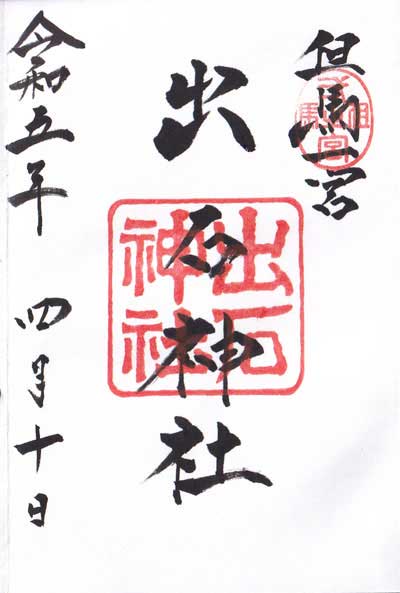 但馬一宮
出石神社
出石神社
令和五年 四月十日